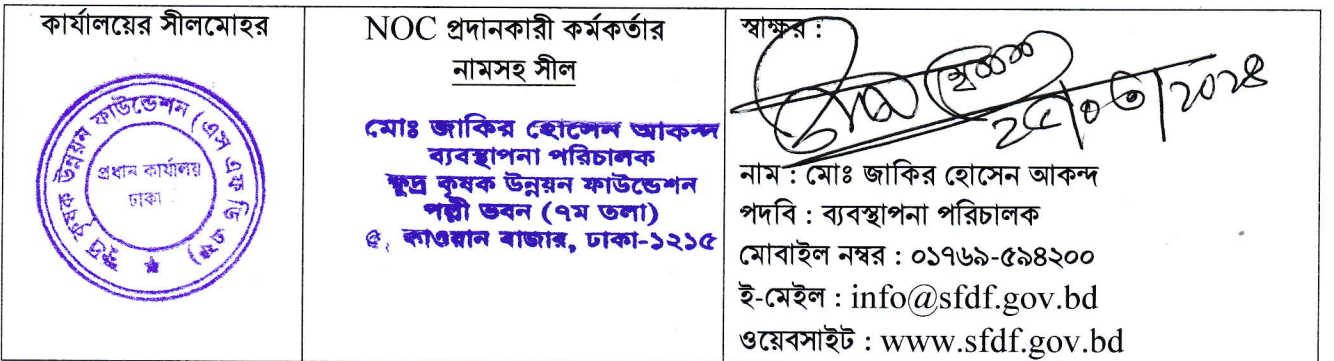 কার্যালয়ের সীলমোহর
ক্ষুদ্র কৃষক উন্নয়ন ফাউন্ডেশন (এস এফ ডি এফ)
প্রধান কার্যালয়
ঢাকা
NOC প্রদানকারী কর্মকর্তার
নামসহ সীল
মোঃ জাকির হোসেন আকন্দ
ব্যবস্থাপনা পরিচালক
ক্ষুদ্র কৃষক উন্নয়ন ফাউন্ডেশন
পল্লী ভবন (৭ম তলা)
৫, কাওরান বাজার, ঢাকা-১২১৫
স্বাক্ষর :
নাম : মোঃ জাকির হোসেন আকন্দ
পদবি : ব্যবস্থাপনা পরিচালক
মোবাইল নম্বর : ০১৭৬৯-৫৯৪২০০
ই-মেইল : info@sfdf.gov.bd
ওয়েবসাইট : www.sfdf.gov.bd